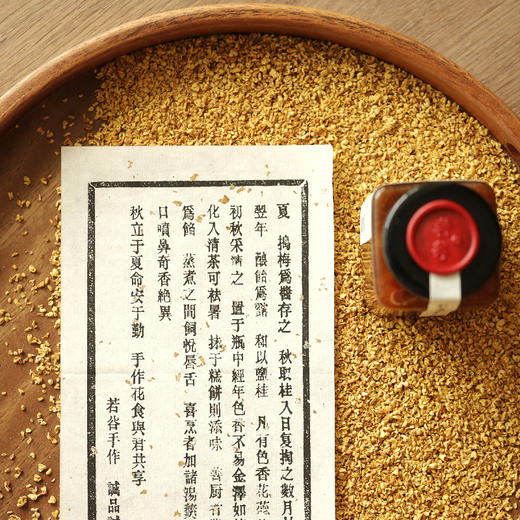 夏 搗梅爲醬存之 秋取桂入日复掏之數月
翌年 釀飴爲露 和以鹽桂 凡有色香花蕊
初秋采清之 置于瓶中經年色香不易金澤如
化入清茶可祛暑 抹于糕餅則添味 善厨者
爲餡 蒸煮之間飼悅唇舌 喜烹者加諸湯藥
日噴鼻奇香絶異
秋立于夏命安于勤 手作花食與君共享
若谷手作 誠品